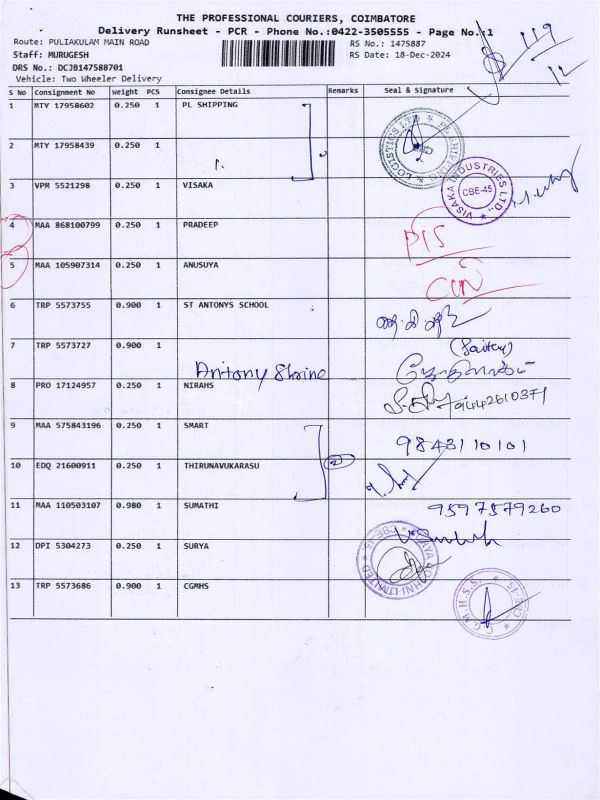 THE PROFESSIONAL COURIERS, COIMBATORE
Delivery Runsheet - PCR - Phone No.:0422-3505555 - Page No.:1
Route: PULIAKULAM MAIN ROAD RS No.: 1475887
Staff: MURUGESH RS Date: 18-Dec-2024
DRS No.: DCJB147588701
Vehicle: Two Wheeler Delivery
119
12
S No Consignment No Weight PCS Consignee Details Remarks Seal & Signature
1 MTY 17958602 0.250 1 PL SHIPPING
PL SHIPPING & LOGISTICS LTD
2 MTY 17958439 0.250 1
3 VPM 5521298 0.250 1 VISAKA
VISAKA INDUSTRIES LTD., CBE-45
4 MAA 868100799 0.250 1 PRADEEP
5 MAA 105907314 0.250 1 ANUSUYA
6 TRP 5573755 0.900 1 ST ANTONYS SCHOOL
7 TRP 5573727 0.900 1
Antony Shrine
8 PRO 17124957 0.250 1 NIRAHS 9442610371
9 MAA 575843196 0.250 1 SMART 9843110101
10 EDQ 21600911 0.250 1 THIRUNAVUKARASU 2
11 MAA 110503107 0.980 1 SUMATHI 9597579260
12 DPI 5304273 0.250 1 SURYA
13 TRP 5573686 0.900 1 CGMHS
C.G.M.H.S.S. CBE-45